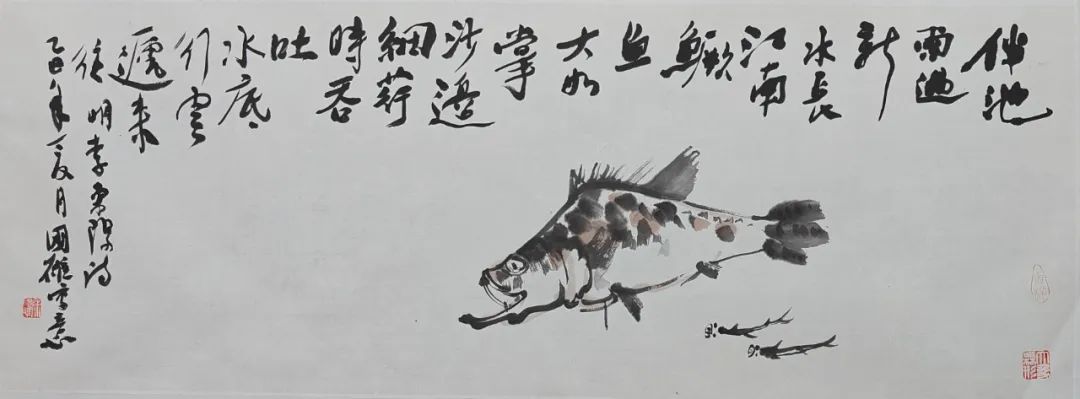 池
雨過
新
水長
江南
鳜
鱼
大如
掌
沙邊
細荇
時吞
吐
水底
行雲
遞来
往 明李東陽詩
乙巳年夏月 國雄寫意